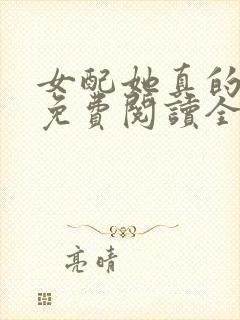 女配她真的
免費閱讀全
亮晴